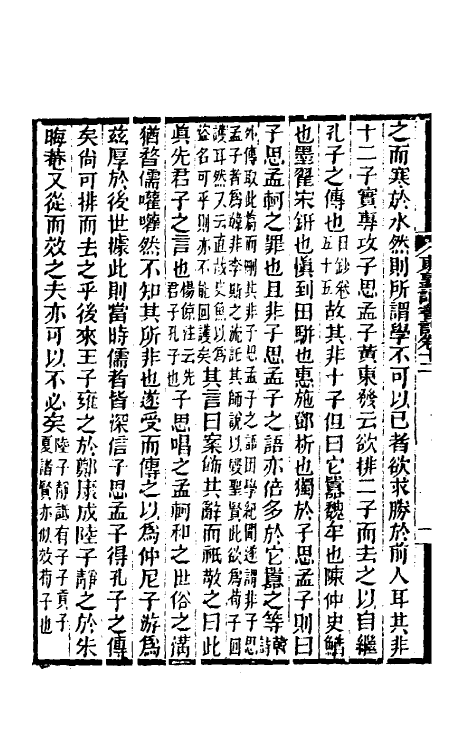 之而寒於水然則所謂學不可以已者欲求勝於前人耳其非
十二子實專攻子思孟子黃東發云欲排二子而去之以自繼
孔子之傳也日鈔卷五十五故其非十子但曰它囂魏牟也陳仲史鰌
也墨翟宋鈃也愼到田駢也惠施鄧析也獨於子思孟子則曰
子思孟軻之罪也且非子思孟子之語亦倍多於它囂之等韓詩
外傳取此篇而刪其非子思孟子之語困學紀聞遂謂非子思
孟子者爲韓非李斯之流託其師說以毀聖賢此欲爲荀子回
護耳然又云直故史魚以爲
盜名可乎則亦不能回護矣其言曰案飾其辭而祇敬之曰此
眞先君子之言也楊倞注云先君子孔子也子思唱之孟軻和之世俗之溝
猶瞀儒嚾嚾然不知其所非也遂受而傳之以爲仲尼子游爲
茲厚於後世據此則當時儒者皆深信子思孟子得孔子之傳
矣尙可排而去之乎後來王子雍之於鄭康成陸子靜之於朱
晦菴又從而效之夫亦可以不必矣陸子靜譏有子子貢子
夏諸賢亦似效荀子也
東塾讀書記卷十二